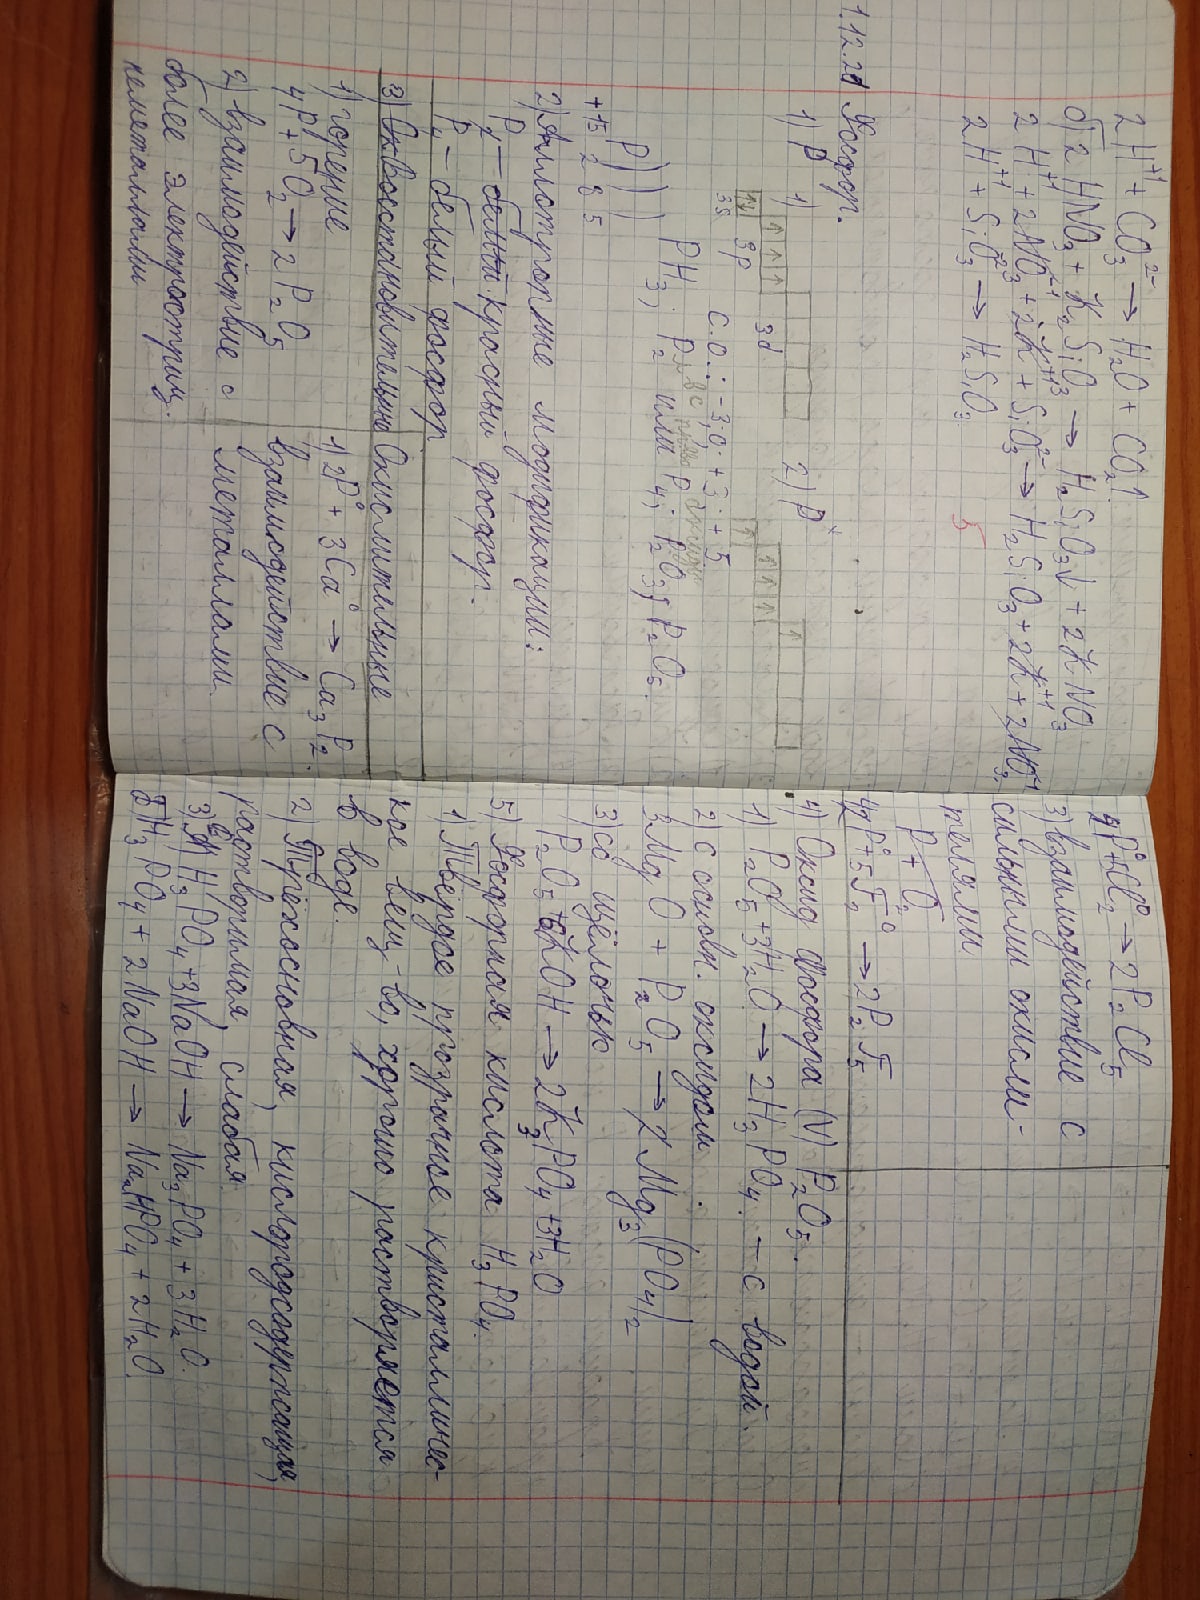 2H⁺¹ + CO₃²⁻ → H₂O + CO₂↑
б) 2HNO₃ + K₂SiO₃ → H₂SiO₃↓ + 2KNO₃
2H⁺¹ + 2NO₃⁻¹ + 2K⁺¹ + SiO₃²⁻ → H₂SiO₃ + 2K⁺¹ + 2NO₃⁻¹
2H⁺¹ + SiO₃²⁻ → H₂SiO₃
5
1.12.21 Фосфор.
1) P 1) 2) P*
3s 3p 3d
с.о.: -3; 0; +3; +5
PH₃; P₂ или P₄; P₂O₃; P₂O₅.
P
+15 2 8 5
2) Аллотропные модификации:
P₂ – красный фосфор.
P₄ – белый фосфор
3) Восстановительные Окислительные
1) горение
4P + 5O₂ → 2P₂O₅
2) взаимодействие с
более электроотриц.
неметаллами
1) 2P⁰ + 3Ca⁰ → Ca₃P₂.
взаимодействие с
металлами
2P⁰ + Cl₂⁰ → 2P₂Cl₅
3) взаимодействие с
сильными окисли-
телями
P + O₂
4P⁰ + 5F₂⁰ → 2P₂F₅
4) Оксид фосфора (V) P₂O₅.
1) P₂O₅ + 3H₂O → 2H₃PO₄. – с водой.
2) с основн. оксидом.
3MgO + P₂O₅ → Mg₃(PO₄)₂
3) со щёлочью
P₂O₅ + 6KOH → 2K₃PO₄ + 3H₂O
5) Фосфорная кислота H₃PO₄.
1) Твёрдое прозрачное кристалличес-
кое вещ-во, хорошо растворяется
в воде.
2) Трёхосновная, кислородсодержащая,
растворимая, слабая.
3) а) H₃PO₄ + 3NaOH → Na₃PO₄ + 3H₂O.
б) H₃PO₄ + 2NaOH → Na₂HPO₄ + 2H₂O.